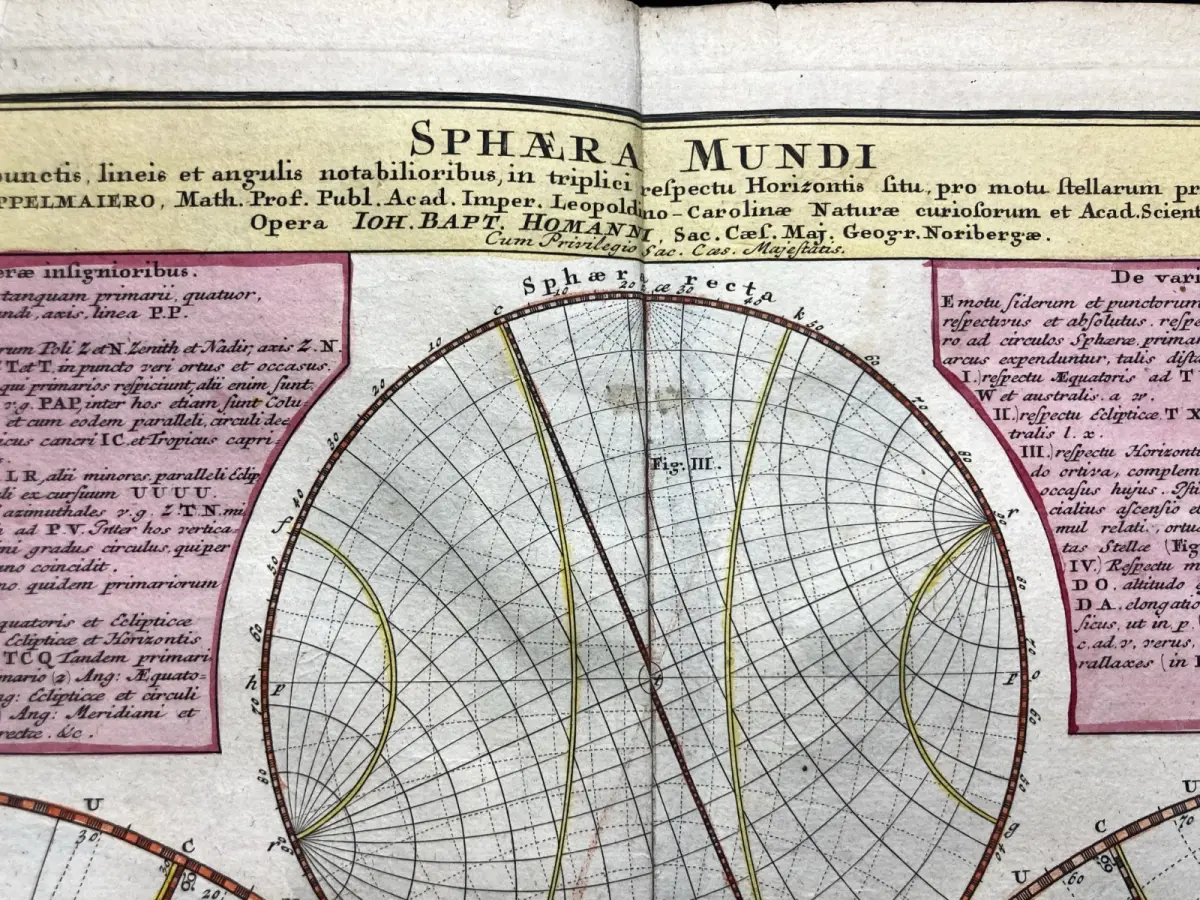 SPHÆRA MUNDI
punctis, lineis et angulis notabilioribus, in triplici reſpectu Horizontis ſitu, pro motu ſtellarum pr
PPELMAIERO, Math. Prof. Publ. Acad. Imper. Leopoldino-Carolinæ Naturæ curioſorum et Acad. Scient
Opera IOH. BAPT. HOMANNI, Sac. Cæſ. Maj. Geogr. Noribergæ.
Cum Privilegio Sac. Cæs. Majeſtatis.
eræ inſignioribus.
tanquam primarii, quatuor,
undi, axis, linea P.P.
rum Poli Z et N Zenith et Nadir, axis Z.N.
T et T, in puncto veri ortus et occasus.
qui primarios reſpiciunt, alii enim ſunt
v.g. PAP, inter hos etiam ſunt Colu-
et cum eodem paralleli, circuli dec
icus cancri IC et Tropicus capri-
LR, alii minores paralleli Eclip
di excurſuum UUUU.
azimuthales v.g. Z T.N. mi
ad P.V. Inter hos vertica-
mi gradus circulus, qui per
no coincidit.
no quidem primariorum
quatoris et Eclipticæ
Eclipticæ et Horizontis
TCQ Tandem primari
nario (2) Ang: Æquato=
ng: Eclipticæ et circuli
Ang: Meridiani et
rectæ. &c.
Sphæræ recta
Fig. III.
10 20 30 40
10 20 30 40
60 70 80
c k r f h P P o g r
60 70 80
60 50 40
De vari
E motu ſiderum et punctorum
reſpectivus et abſolutus. reſp
ro ad circulos Sphæræ primar
arcus expenduntur, talis diſta
I.) reſpectu Æquatoris ad T
W et auſtralis. a w.
II.) reſpectu Eclipticæ T X
tralis l. x.
III.) reſpectu Horizont
do ortiva, complem
occaſus hujus. Pſi
cialius aſcenſio e
mul relati, ortu
tas Stellæ (Fig
IV.) Reſpectu m
D O. altitudo
D A. elongatio
ſicus, ut in p
c. ad. v. verus,
rallaxes (in
U 30 C 20
U 60 C 70 U